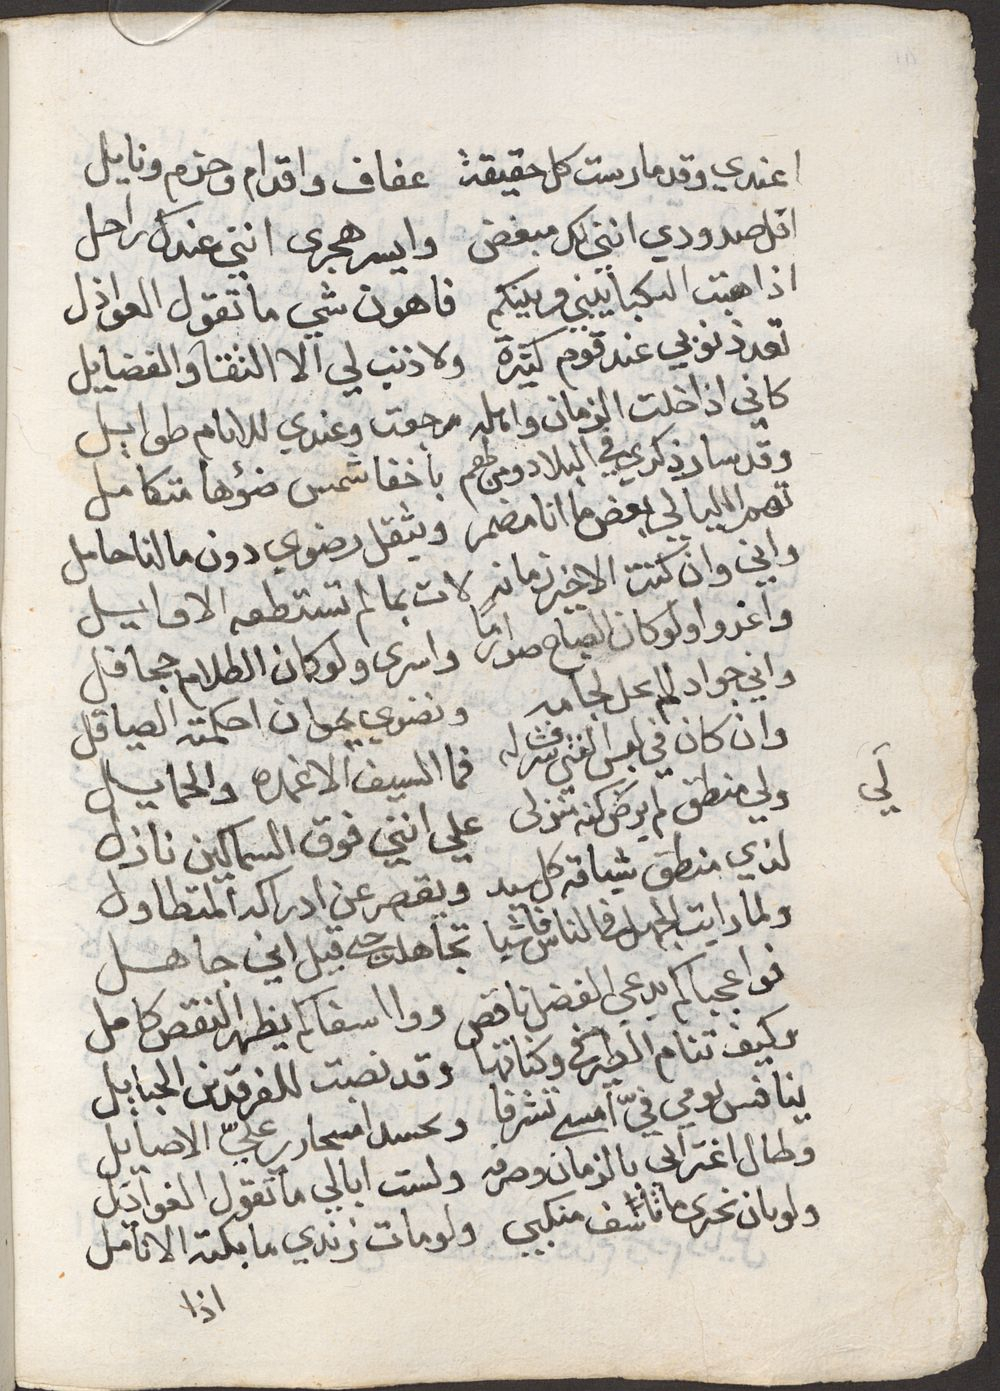 اعندي وقد مارست كل حقيقة عفاف واقدام وحزم ونايل
اقل صدودي انني لك مبغض وايسر هجري انني عنك راحل
اذا هبت النكبا بيني وبينكم فاهون شي ما تقول العواذل
تعد ذنوبي عند قوم كثيرة ولا ذنب لي الا التقا والفضايل
كاني اذا خلت الزمان واهله رجعت وعندي للانام طوايل
وقد سار ذكري في البلاد ومن لهم باخفا شمس ضوها متكامل
تهم الليالي بعض ما انا مضمر ويثقل رضوي دون ما انا حامل
واني وان كنت الاخير زمانه لات بما لم تستطعه الاوايل
واغدوا ولو كان الصباح صوارما واسرى ولو كان الظلام جحافل
واني جواد لم يحل لجامه ونضوي يمان احكمته الصياقل
وان كان في لبس الفتى شرف له فما السيف الا غمده والحمايل
ولي منطق لم يرض كنه تنزلى علي انني فوق السماكين نازل
لي
لذي منطق يشتاقه كل سيد ويقصر عن ادراكه المتطاول
ولما رايت الجهل في الناس فاشيا تجاهلت حتى قيل اني جاهل
فواعجبا كم يدعي الفضل ناقص ووااسفا كم يظهر النقص كامل
وكيف تنام الطير في وكناتها وقد نصبت للفرقدين الحبايل
ينافس يومي فيّ امسي تشرفا وتحسد اسحاري عليّ الاصايل
وطال اغترابي بالزمان وصرفه ولست ابالي ما تقول الغوايل
ولو بان نحري ما تاسف منكبي ولو مات زندي ما بكته الانامل
اذا